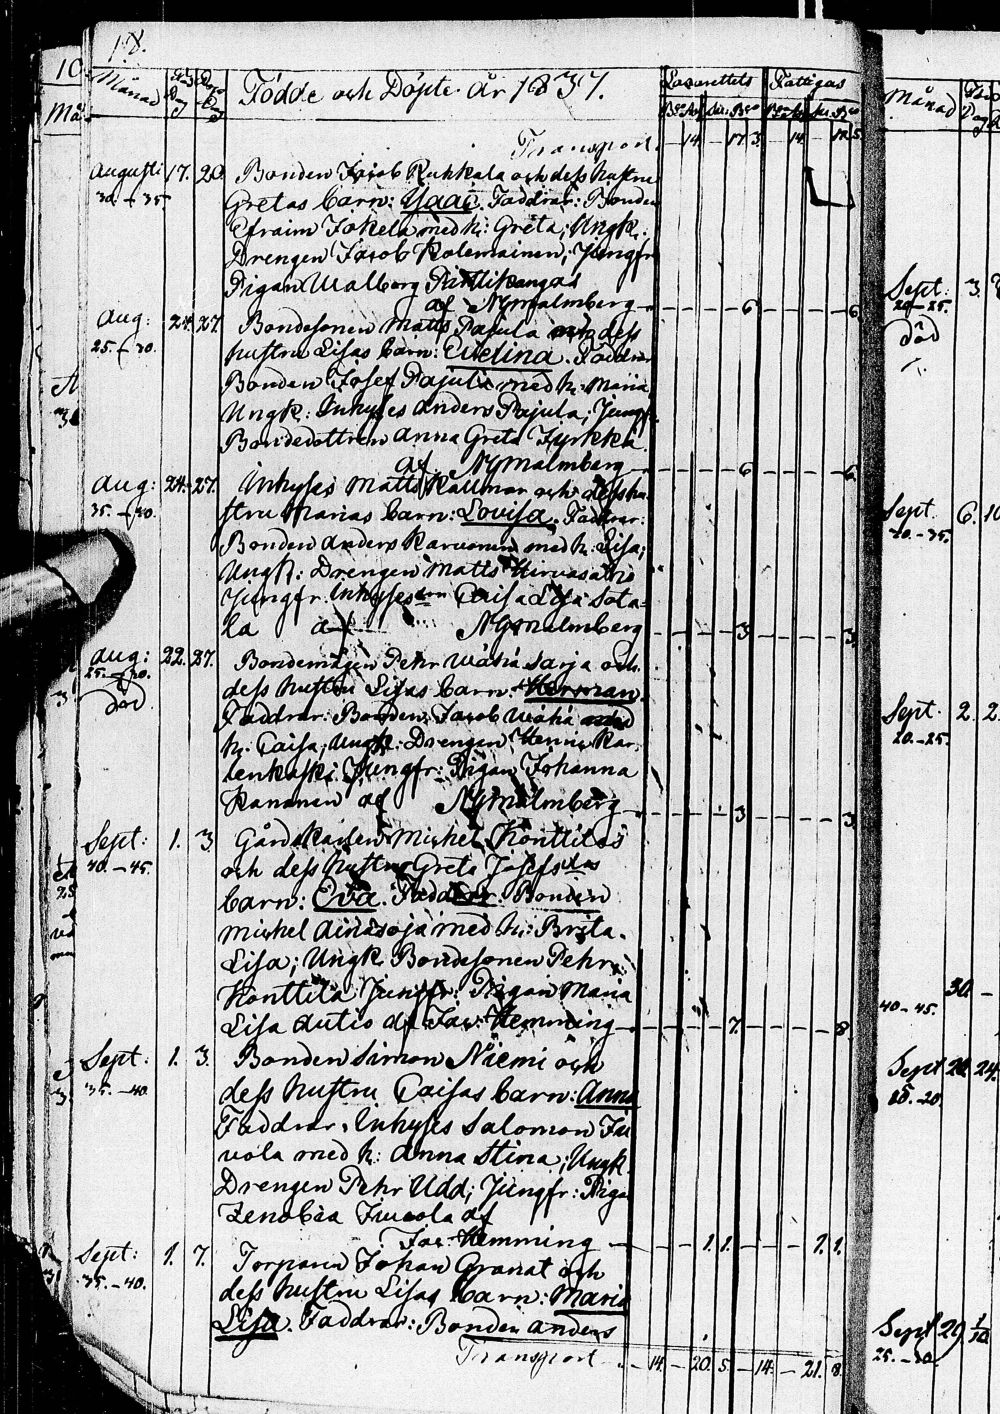 18.
Månad Född Dag Döpt Dag Födde och Döpte År 1837. Lasarettets Fattigas
Transport. 14. — 17. 3. 14. — 17. 5.
Augusti 17. 20. Bonden Jacob Ruhkala och dess hustru
30. — 35. Gretas barn: Isaac. Faddrar: Bonden
Efraim Jokela med h: Greta; Ungk:
Drengen Jacob Kolemainen; Jungfr
Pigan Walborg
af Nymalmberg — — — 6. — — — 6.
Aug: 24. 27. Bondesonen Matts Pajula och dess
25. — 30. hustru Lisas barn: Evelina. Faddrar
Bonden Josef Pajula med h: Maria
Ungk: Inhyses Anders Pajula; Jungfr
Bondedottren Anna Greta Jyrkkä
af Nymalmberg — — — 6. — — — 6.
Aug: 24. 27. Inhyses Matts och dess hu-
35. — 40. stru Marias barn: Lovisa. Faddrar:
Bonden Anders Karvonen med h: Lisa;
Ungk: Drengen Matts Hirvasaho
Jungfr. Inhyses Caisa Lisa Sota-
la af Nymalmberg — — — 3. — — — 3.
Aug: 22. 27. Bondemågen Pehr Wähä Sarja och
25. — 30. dess hustru Lisas barn: Herman.
död Faddrar: Bonden Jacob Wähä med
h: Caisa; Ungk: Drengen Henric Kar-
; Jungfr: Pigan Johanna
Kananen af Nymalmberg — — — 3. — — — 3.
Sept: 1. 3. Gårdskarlen Michel Konttila
40. — 45. och dess hustru Greta Josefsdas
barn: Eva. Faddrar: Bonden
Michel Ainasoja med h: Brita
Lisa; Ungk Bondesonen Pehr
Konttila Jungfr: Pigan Maria
Lisa Autio af Jar: Hemming — — — 7. — — — 8.
Sept: 1. 3. Bonden Simon Niemi och
35. — 40. dess hustru Caisas barn: Anna
Faddrar, Inhyses Salomon Ju
vola med h: Anna Stina; Ungk
Drengen Pehr Udd; Jungfr: Piga
Zenobia Juvola af
Jar: Hemming — — — 1. 1. — — 1. 1.
Sept: 1. 7. Torparen Johan Granat och
35. — 40. dess hustru Lisas barn: Maria
Lisa. Faddrar: Bonden Anders
Transport — 14. — 20. 5. — 14. — 21. 8.
Månad
Sept. 3.
20 — 25.
död
Sept. 6. 10
30. — 35.
Sept. 2. 2.
20. — 25.
30. —
40 — 45.
Sept 24.
Sept 29 1/10
25. — 30